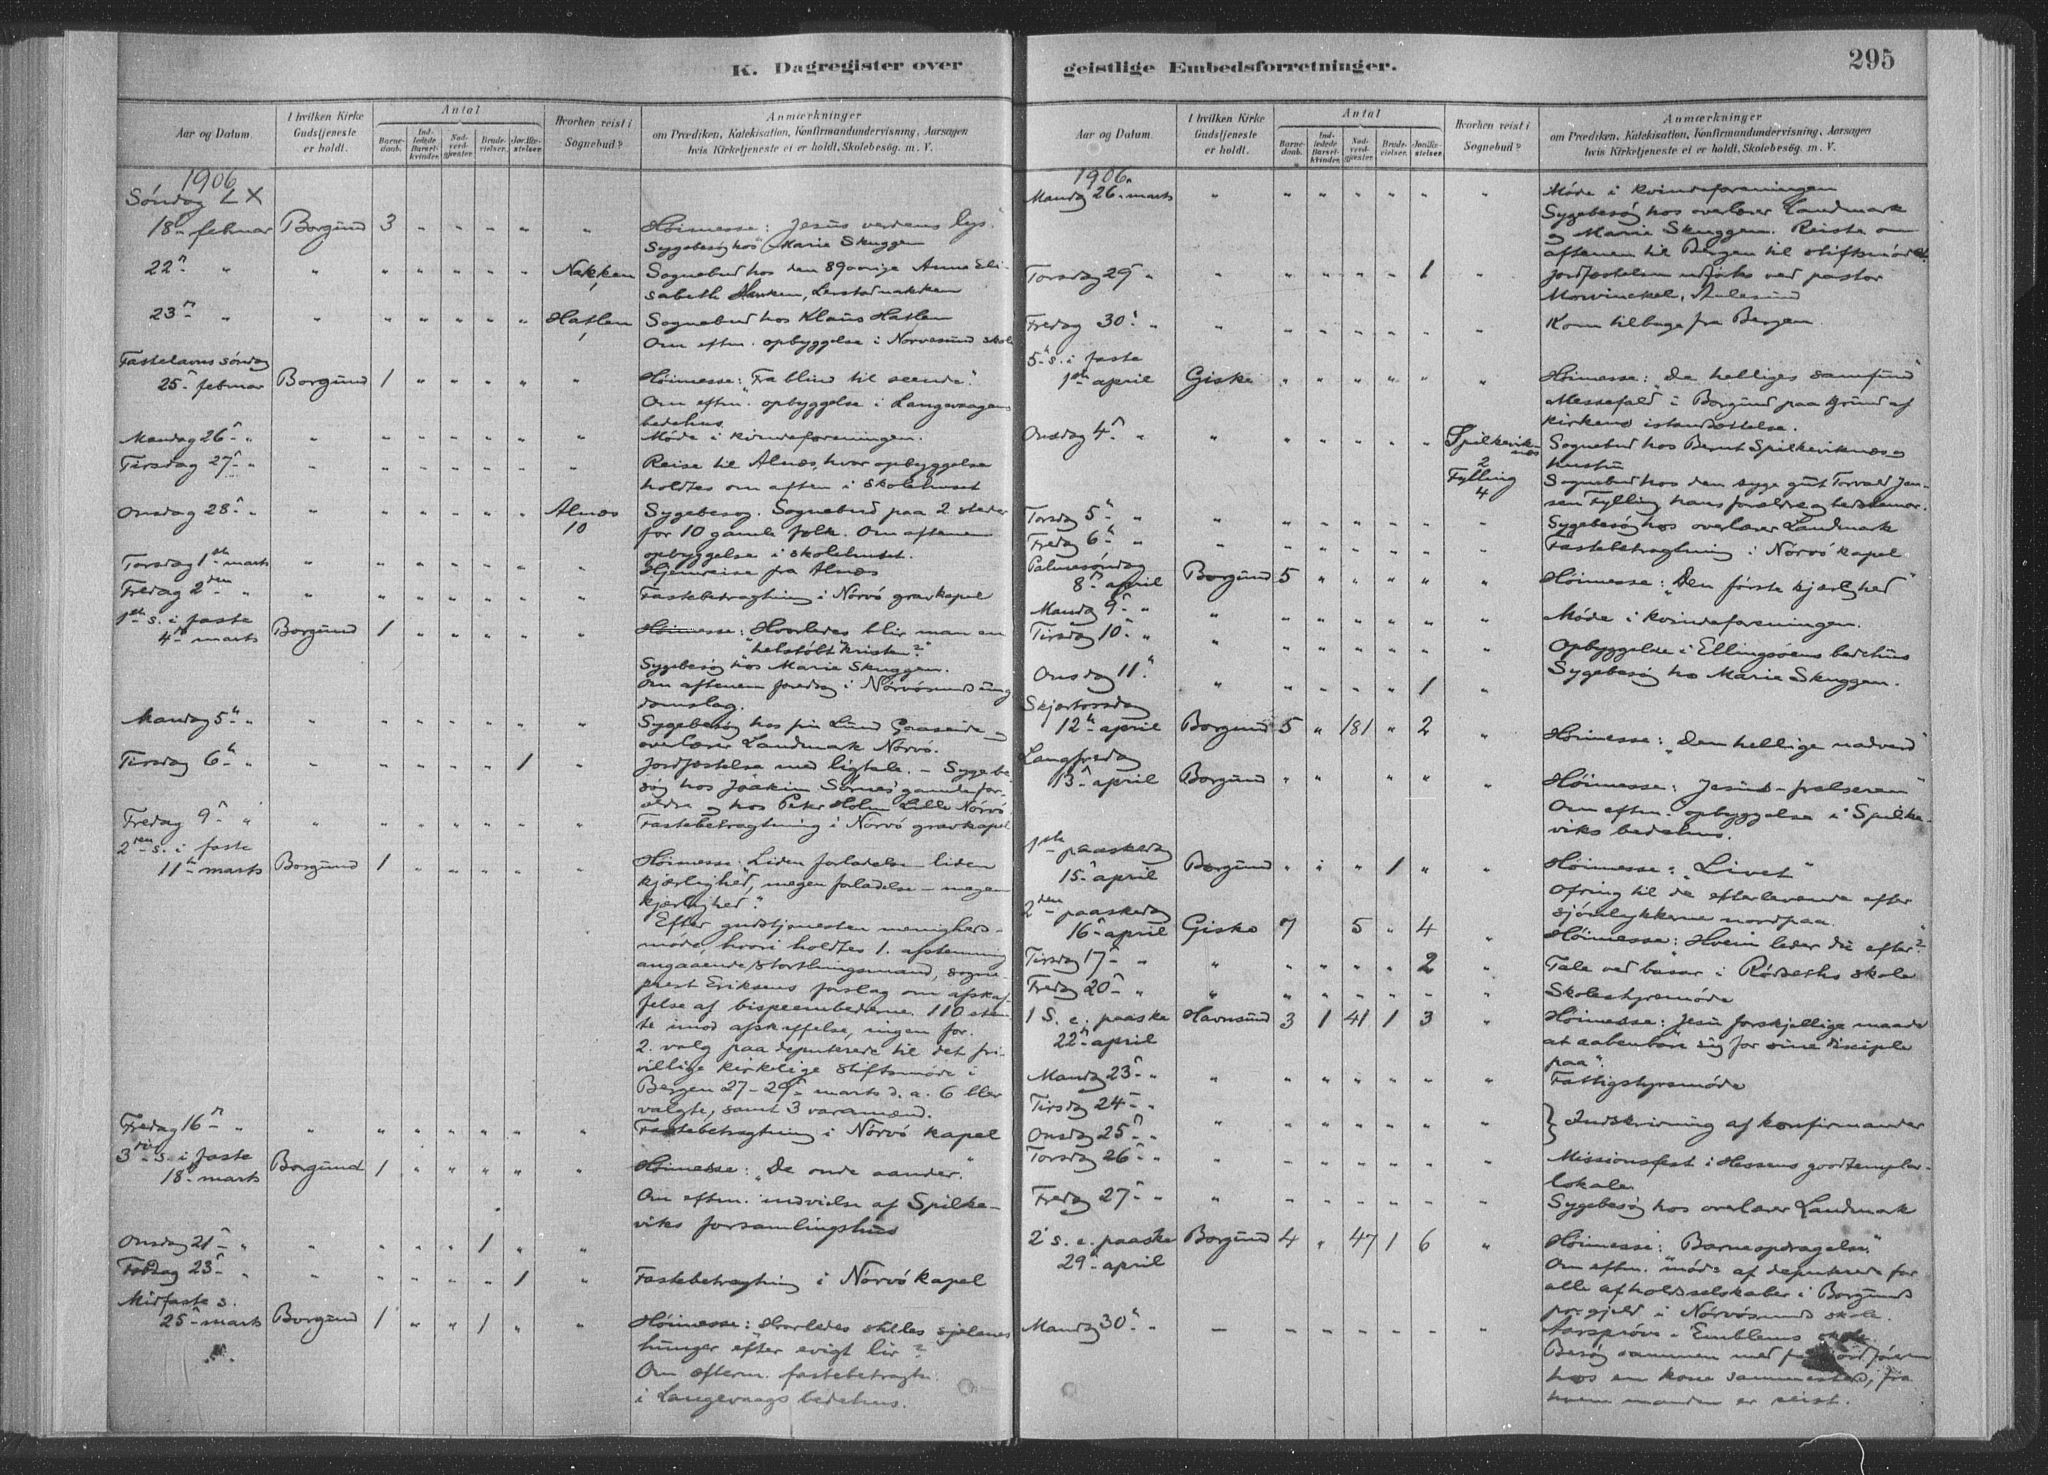 K. Dagregister over
Aar og Datum.
I hvilken Kirke Gudstjeneste er holdt.
Antal
Barnedaab. Indledede Barselkvinder. Nadverdgjester. Brudevielser. Jordfæstelser.
Hvorhen reist i Sognebud?
Anmærkninger
om Prædiken, Katekisation, Konfirmandundervisning, Aarsagen
hvis Kirketjeneste ei er holdt, Skolebesøg. m. V.
1906
Søndag LX
18- februar Borgund 3 " " " " " Høimesse: Jesus verdens lys.
Sygebesøg hos Marie Skuggen
22- " " " " " " " Nakken Sognebud hos den 89 aarige Anne Eli-
sabeth
23- " " " " " " " Hatlen Sognebud hos Klaus Hatlen
Om eftm. opbyggelse i Nørvesund skole
Fastelavns søndag
25- februar Borgund 1 " " " " " Høimesse: "Fra blind til seende".
Om eftm. opbyggelse i Langevaagens
bedehus
Mandag 26- " " " " " " " " Møde i kvindeforeningen.
Tirsdag 27- " " " " " " " " Reise til Alnæs, hvor opbyggelse
holdtes om aften i skolehuset
Onsdag 28- " " " " " " " Alnæs Sygebesøg. Sognebud paa 2 steder
10 for 10 gamle folk. Om aftenen
opbyggelse i skolehuset.
Torsdag 1ste marts " " " " " " " Hjemreise fra Alnæs
Fredag 2den " " " " " " " " Fastebetragtning i Nørvø gravkapel
1ste s. i faste
4de marts Borgund 1 " " " " " Høimesse: Hvorledes blir man en
"helstøbt" kristen?
Sygebesøg hos Marie Skuggen.
Om aftenen foredrag i Nørvøsund ung
domslag.
Mandag 5- " " " " " " " " Sygebesøg hos frk Lund Gaaseide og
overlærer Landmark Nørvø.
Tirsdag 6- " " " " " " 1 " Jordfæstelse med ligtale. - Sygebe-
søg hos Joakim Sørnes gamle for-
ældre og hos Peter Holm Lille Nørvø
Fredag 9- " " " " " " " " Fastebetragtning i Nørvø gravkapel
2den s. i faste
11- marts Borgund 1 " " " " " Høimesse: Liden forladelse liden
kjærlighed, megen forladelse - megen
kjærlighed".
Efter gudstjenesten menigheds-
møde, hvori holdtes 1. afstemning
angaaende stortingsmand, sogne-
prest Eriksens forslag om afskaf-
felse af bispeembederne. 110 stem-
te imod afskaffelse, ingen for.
2. valg paa deputerede til det fri-
villige kirkelige stiftsmøde i
Bergen 27-29- marts d. a. 6 blev
valgte, samt 3 varamænd.
Fredag 16- " " " " " " " " Fastebetragtning i Nørvø kapel
3die s. i faste
18- marts Borgund 1 " " " " " Høimesse: "De onde aander".
Om eftm. indvielse af Spilke-
viks forsamlingshus
Onsdag 21- " " " " " 1 " "
Fredag 23- " " " " " " 1 " Fastebetragtning i Nørvø kapel
Midfaste s.
25- marts Borgund 1 " " 1 " " Høimesse: Hvorledes stilles sjelenes
hunger efter evigt liv?
Om efterm. fastebetragtn.
i Langevaags bedehus.
geistlige Embedsforretninger.
295
Aar og Datum.
I hvilken Kirke Gudstjeneste er holdt.
Antal
Barnedaab. Indledede Barselkvinder. Nadverdgjester. Brudevielser. Jordfæstelser.
Hvorhen reist i Sognebud?
Anmærkninger
om Prædiken, Katekisation, Konfirmandundervisning, Aarsagen
hvis Kirketjeneste ei er holdt, Skolebesøg. m. V.
1906.
Mandag 26- marts " " " " " " " Møde i kvindeforeningen
Sygebesøg hos overlærer Landmark
og Marie Skuggen. Reiste om
aftenen til Bergen til stiftsmødet.
Torsdag 29- " " " " " " 1 Jordfæstelsen udførtes ved pastor
Mowinckel, Aalesund
Fredag 30- " " " " " " " " Kom tilbage fra Bergen.
5- s. i faste
1ste april Giske " " " " " " Høimesse: "De helliges samfund"
Messefald i Borgund paa grund af
kirkens istandsættelse.
Onsdag 4- " " " " " " " Spilkeviknes Sognebud hos Bernt Spilkeviknes og
2 hustru
Fylling Sognebud hos den syge gut Torvald Jen-
4 sen Fylling hans forældre og bedstemor.
Torsdag 5- " " " " " " " " Sygebesøg hos overlærer Landmark
Fredag 6- " " " " " " " " Fastebetragtning i Nørvø kapel
Palmesøndag
8- april Borgund 5 " " " " " Høimesse: "Den første kjærlighed"
Mandag 9- " " " " " " " " Møde i kvindeforeningen.
Tirsdag 10- " " " " " " " " Opbyggelse i Ellingsøens bedehus
Onsdag 11- " " " " " 1 " Sygebesøg hos Marie Skuggen.
Skjærtorsdag
12- april Borgund 5 " 181 " 2 " Høimesse: "Den hellige nadverd"
Langfredag
13- april Borgund " " " " " " Høimesse: Jesus - frelseren"
Om eftm. opbyggelse i Spilke-
viks bedehus.
1ste paaskedag
15- april Borgund " " " 1 " " Høimesse: "Livet"
Ofring til de efterlevende efter
sjøulykkerne nordpaa.
2den paaskedag
16- april Giske 7 5 " 4 " Høimesse: Hvem leder du efter?
Tirsdag 17- " " " " " " 2 " Tale ved basar i Rødseths skole
Fredag 20- " " " " " " " " Skolestyrsmøde
1 S. e. paaske Havnsund 3 1 41 1 3 " Høimesse: Jesu forskjellige maade
22- april at aabenbare sig for sine disciple
paa".
Mandag 23- " " " " " " " " Fattigstyrsmøde
Tirsdag 24- "
Onsdag 25- " " " " " " " " } Indskrivning af konfirmander
Torsdag 26- " " " " " " " " Missionsfest i Hessens goodtemplar-
lokale.
Fredag 27- " " " " " " " " Sygebesøg hos overlærer Landmark
2 s. e. paaske Borgund 4 " 47 1 6 " Høimesse: "Barneopdragelse".
29- april Om eftm. møde af deputerede for
alle afholdsselskaber i Borgunds
prgjeld i Nørvøsunds skole.
Mandag 30- " - " " " " " " Aarsprøve i Emblems skole.
Besøg sammen med
hos en kone sammesteds, fra
hvem manden er reist.